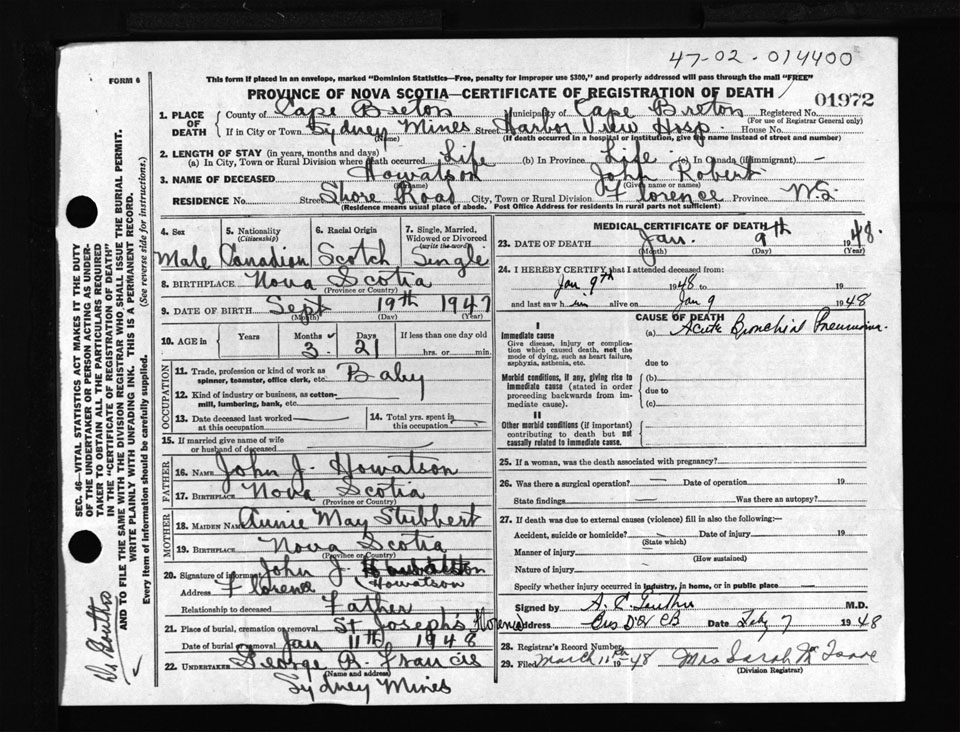 47-02-014400
FORM 6
This form if placed in an envelope, marked "Dominion Statistics—Free, penalty for improper use $300," and properly addressed will pass through the mail "FREE"
PROVINCE OF NOVA SCOTIA—CERTIFICATE OF REGISTRATION OF DEATH
01972
1. PLACE OF DEATH
County of Cape Breton Municipality of Cape Breton Registered No.
(For use of Registrar General only)
If in City or Town Sydney Mines Street Harbor View Hosp. House No.
(If death occurred in a hospital or institution, give the name instead of street and number)
2. LENGTH OF STAY (in years, months and days)
(a) In City, Town or Rural Division where death occurred Life (b) In Province Life (c) In Canada (if immigrant) —
3. NAME OF DECEASED Howatson John Robert
(Surname) (Given name or names)
RESIDENCE No. Street Shore Road City, Town or Rural Division Florence Province N.S.
(Residence means usual place of abode. Post Office Address for residents in rural parts not sufficient)
4. Sex Male
5. Nationality (Citizenship) Canadian
6. Racial Origin Scotch
7. Single, Married, Widowed or Divorced (write the word) Single
8. BIRTHPLACE Nova Scotia
(Province or Country)
9. DATE OF BIRTH Sept 19th 1947
(Month) (Day) (Year)
10. AGE in Years Months 3 Days 21 If less than one day old
hrs. or min.
OCCUPATION
11. Trade, profession or kind of work as spinner, teamster, office clerk, etc. Baby
12. Kind of industry or business, as cotton-mill, lumbering, bank, etc.
13. Date deceased last worked at this occupation
14. Total yrs. spent in this occupation
15. If married give name of wife or husband of deceased
FATHER
16. NAME John J. Howatson
17. BIRTHPLACE Nova Scotia
(Province or Country)
MOTHER
18. MAIDEN NAME Annie May Stubbert
19. BIRTHPLACE Nova Scotia
(Province or Country)
20. Signature of informant John J. Howatson
Address Florence
Relationship to deceased Father
21. Place of burial, cremation or removal St Joseph's Florence
Date of burial or removal Jan 11th 1948
22. UNDERTAKER George R. Francis
(Name and address)
Sydney Mines
MEDICAL CERTIFICATE OF DEATH
23. DATE OF DEATH Jan. 9th 1948.
(Month) (Day) (Year)
24. I HEREBY CERTIFY that I attended deceased from:
Jan 9th 1948 to 19
and last saw him alive on Jan 9 1948
CAUSE OF DEATH
I
Immediate cause
Give disease, injury or complication which caused death, not the mode of dying, such as heart failure, asphyxia, asthenia, etc.
(a) Acute Bronchial Pneumonia.
due to
Morbid conditions, if any, giving rise to immediate cause (stated in order proceeding backwards from immediate cause).
(b)
due to
(c)
II
Other morbid conditions (if important) contributing to death but not causally related to immediate cause.
25. If a woman, was the death associated with pregnancy?
26. Was there a surgical operation? — Date of operation 19
State findings Was there an autopsy?
27. If death was due to external causes (violence) fill in also the following:—
Accident, suicide or homicide? Date of injury 19
(State which)
Manner of injury
(How sustained)
Nature of injury
Specify whether injury occurred in industry, in home, or in public place
Signed by A. C. M.D.
Address Date Feb 7 1948
28. Registrar's Record Number
29. Filed March 11th 1948 Mrs Sarah
(Division Registrar)
SEC. 46—VITAL STATISTICS ACT MAKES IT THE DUTY
OF THE UNDERTAKER OR PERSON ACTING AS UNDERTAKER TO OBTAIN ALL THE PARTICULARS REQUIRED
IN THE "CERTIFICATE OF REGISTRATION OF DEATH"
AND TO FILE THE SAME WITH THE DIVISION REGISTRAR WHO SHALL ISSUE THE BURIAL PERMIT.
WRITE PLAINLY WITH UNFADING INK. THIS IS A PERMANENT RECORD.
Every item of Information should be carefully supplied. (See reverse side for instructions.)
Dr.